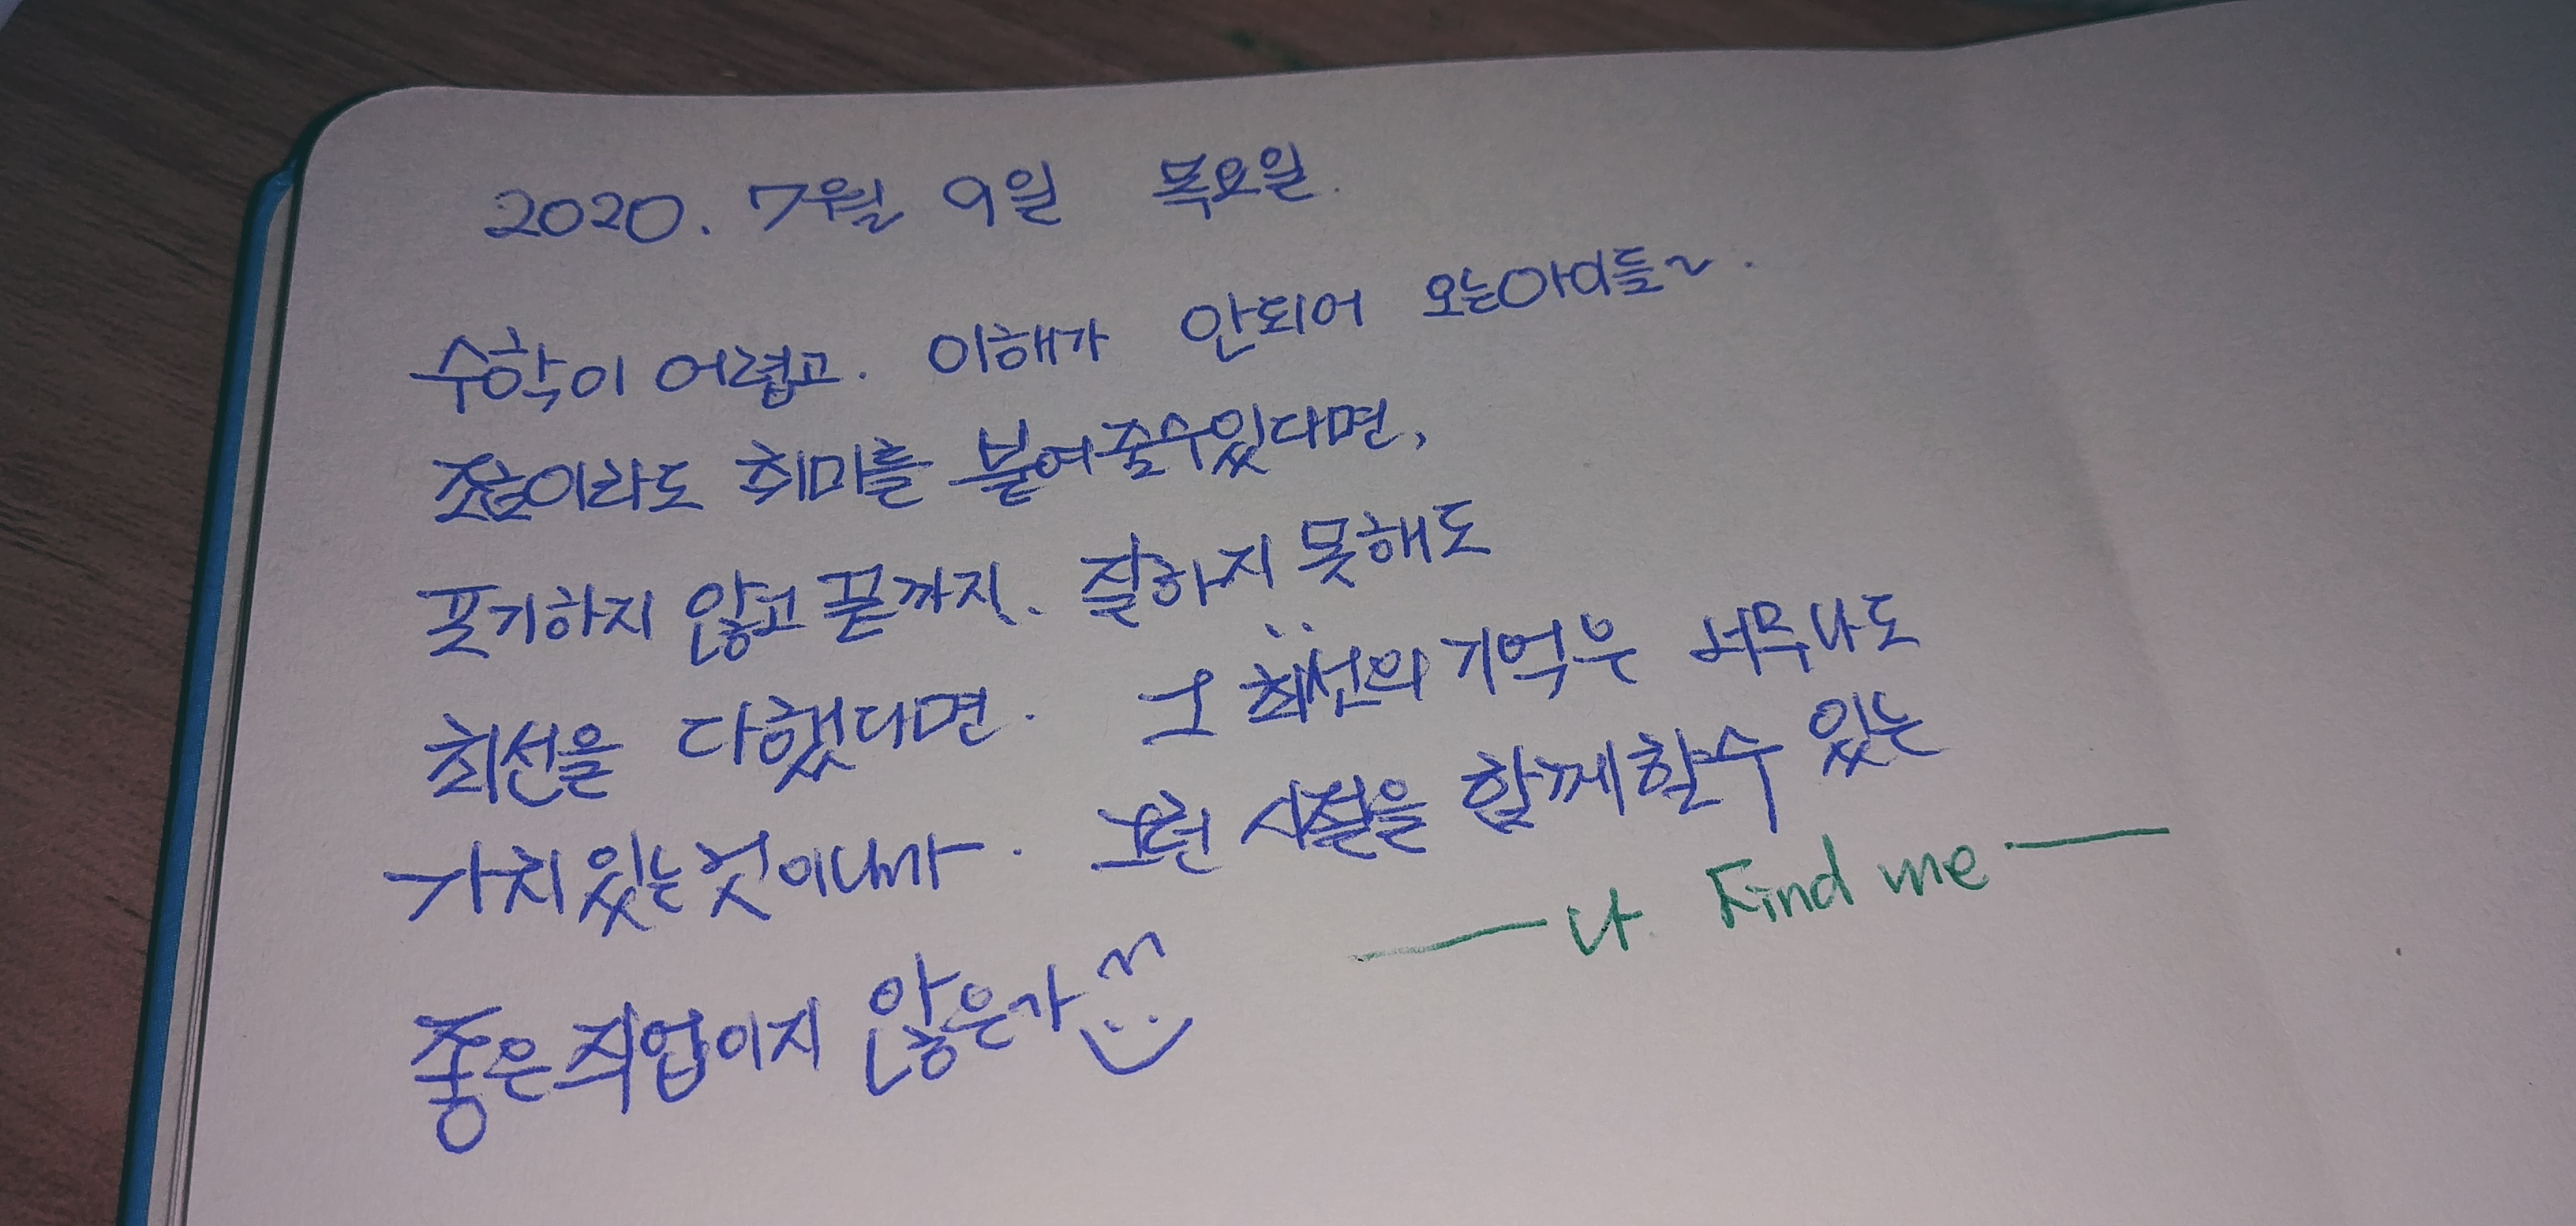 2020. 7월 9일 목요일.
수학이 어렵고. 이해가 안되어 오는아이들~.
좀이라도 취미를 붙여줄수있다면,
포기하지 않고 끝까지. 잘하지 못해도
최선을 다했다면. 그 최선의 기억은 너무나도
가치있는것이니까. 그런 시절을 함께할수 있는
좋은직업이지 않은가
나 Find me